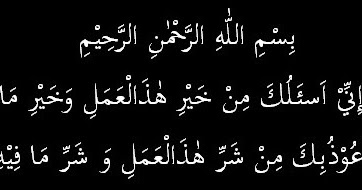 بِسْمِ اللّٰهِ الرَّحْمٰنِ الرَّحِيْمِ
إِنِّيْ اَسئَلُكَ مِنْ خَيْرِ هٰذَالْعَمَلِ وَخَيْرِ مَا
عُوْذُبِكَ مِنْ شَرِّ هٰذَالْعَمَلِ وَ شَرِّ مَا فِيْهِ